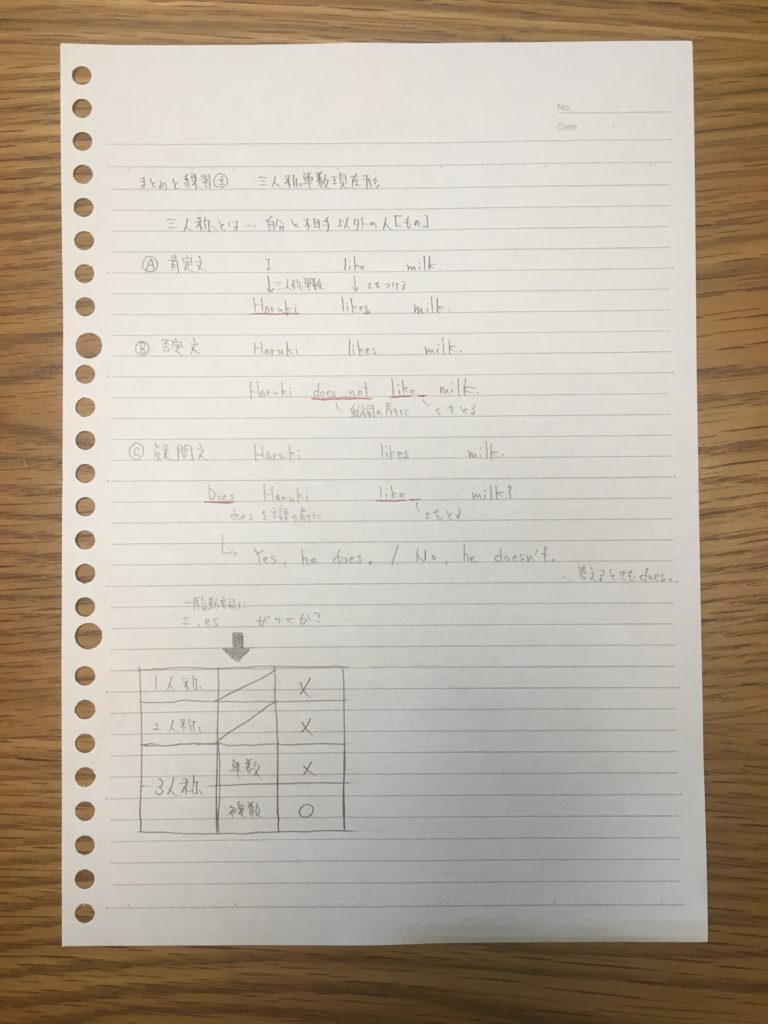 No.
Date
まとめと練習③ 三人称単数現在形
三人称とは… 自分と相手以外の人[もの]
Ⓐ 肯定文 I like milk.
↓三人称単数 ↓sをつける
Haruki likes milk.
Ⓑ 否定文 Haruki likes milk.
Haruki does not like milk.
動詞の前に sをとる
Ⓒ 疑問文 Haruki likes milk.
Does Haruki like milk?
does を主語の前に sをとる
Yes, he does. / No, he doesn't.
答えるときもdoes.
一般動詞に
s, es がつくか?
1人称 X
2人称 X
3人称 単数 X
複数 ○